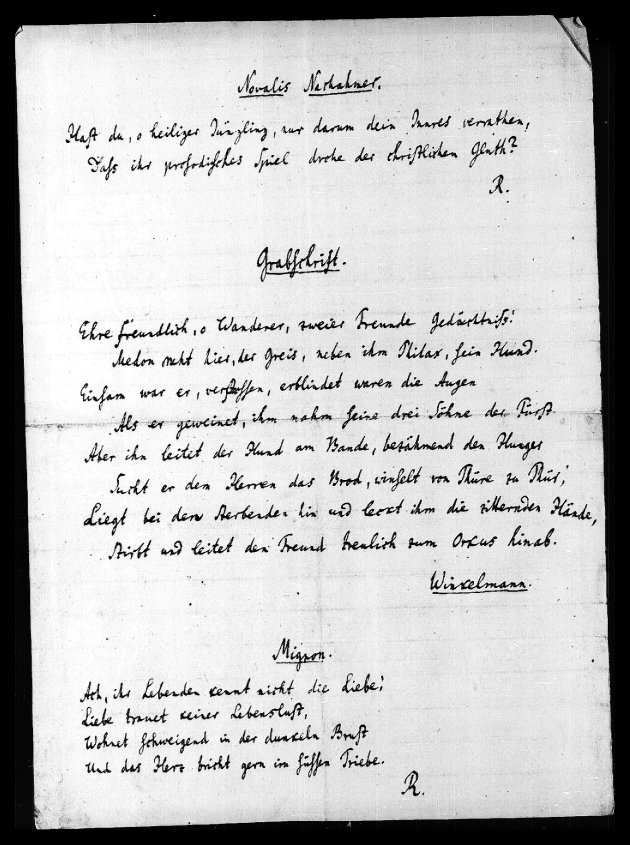 Novalis Nachahmer.
Hast du, o heiliger Jüngling, nur darum dein Innres verrathen,
Dass ihr prosodisches Spiel drohe der christlichen Gluth?
R.
Grabschrift.
Ehre freundlich, o Wanderer, zweier Freunde Gedächtniss!
Medon ruht hier, der Greis, neben ihm Philax, sein Hund.
Einsam war er, verstossen, erblindet waren die Augen
Als er geweinet, ihm nahm seine drei Söhne der Fürst
Aber ihn leitet der Hund am Bande, bezähmend den Hunger
Sucht er dem Herren das Brod, winselt von Thüre zu Thür',
Liegt bei dem Sterbenden hin und leckt ihm die zitternden Hände,
Stirbt und leitet den Freund treulich zum Orkus hinab.
Winkelmann.
Mignon.
Ach, ihr Lebenden kennt nicht die Liebe!
Liebe trauet keiner Lebenslust,
Wohnet schweigend in der dunkeln Brust
Und das Herz bricht gern im süssen Triebe.
R.